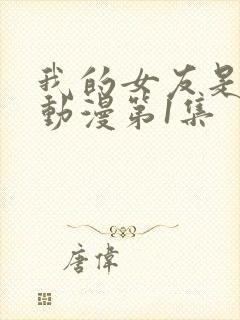 我的女友是
動漫第1集
唐偉